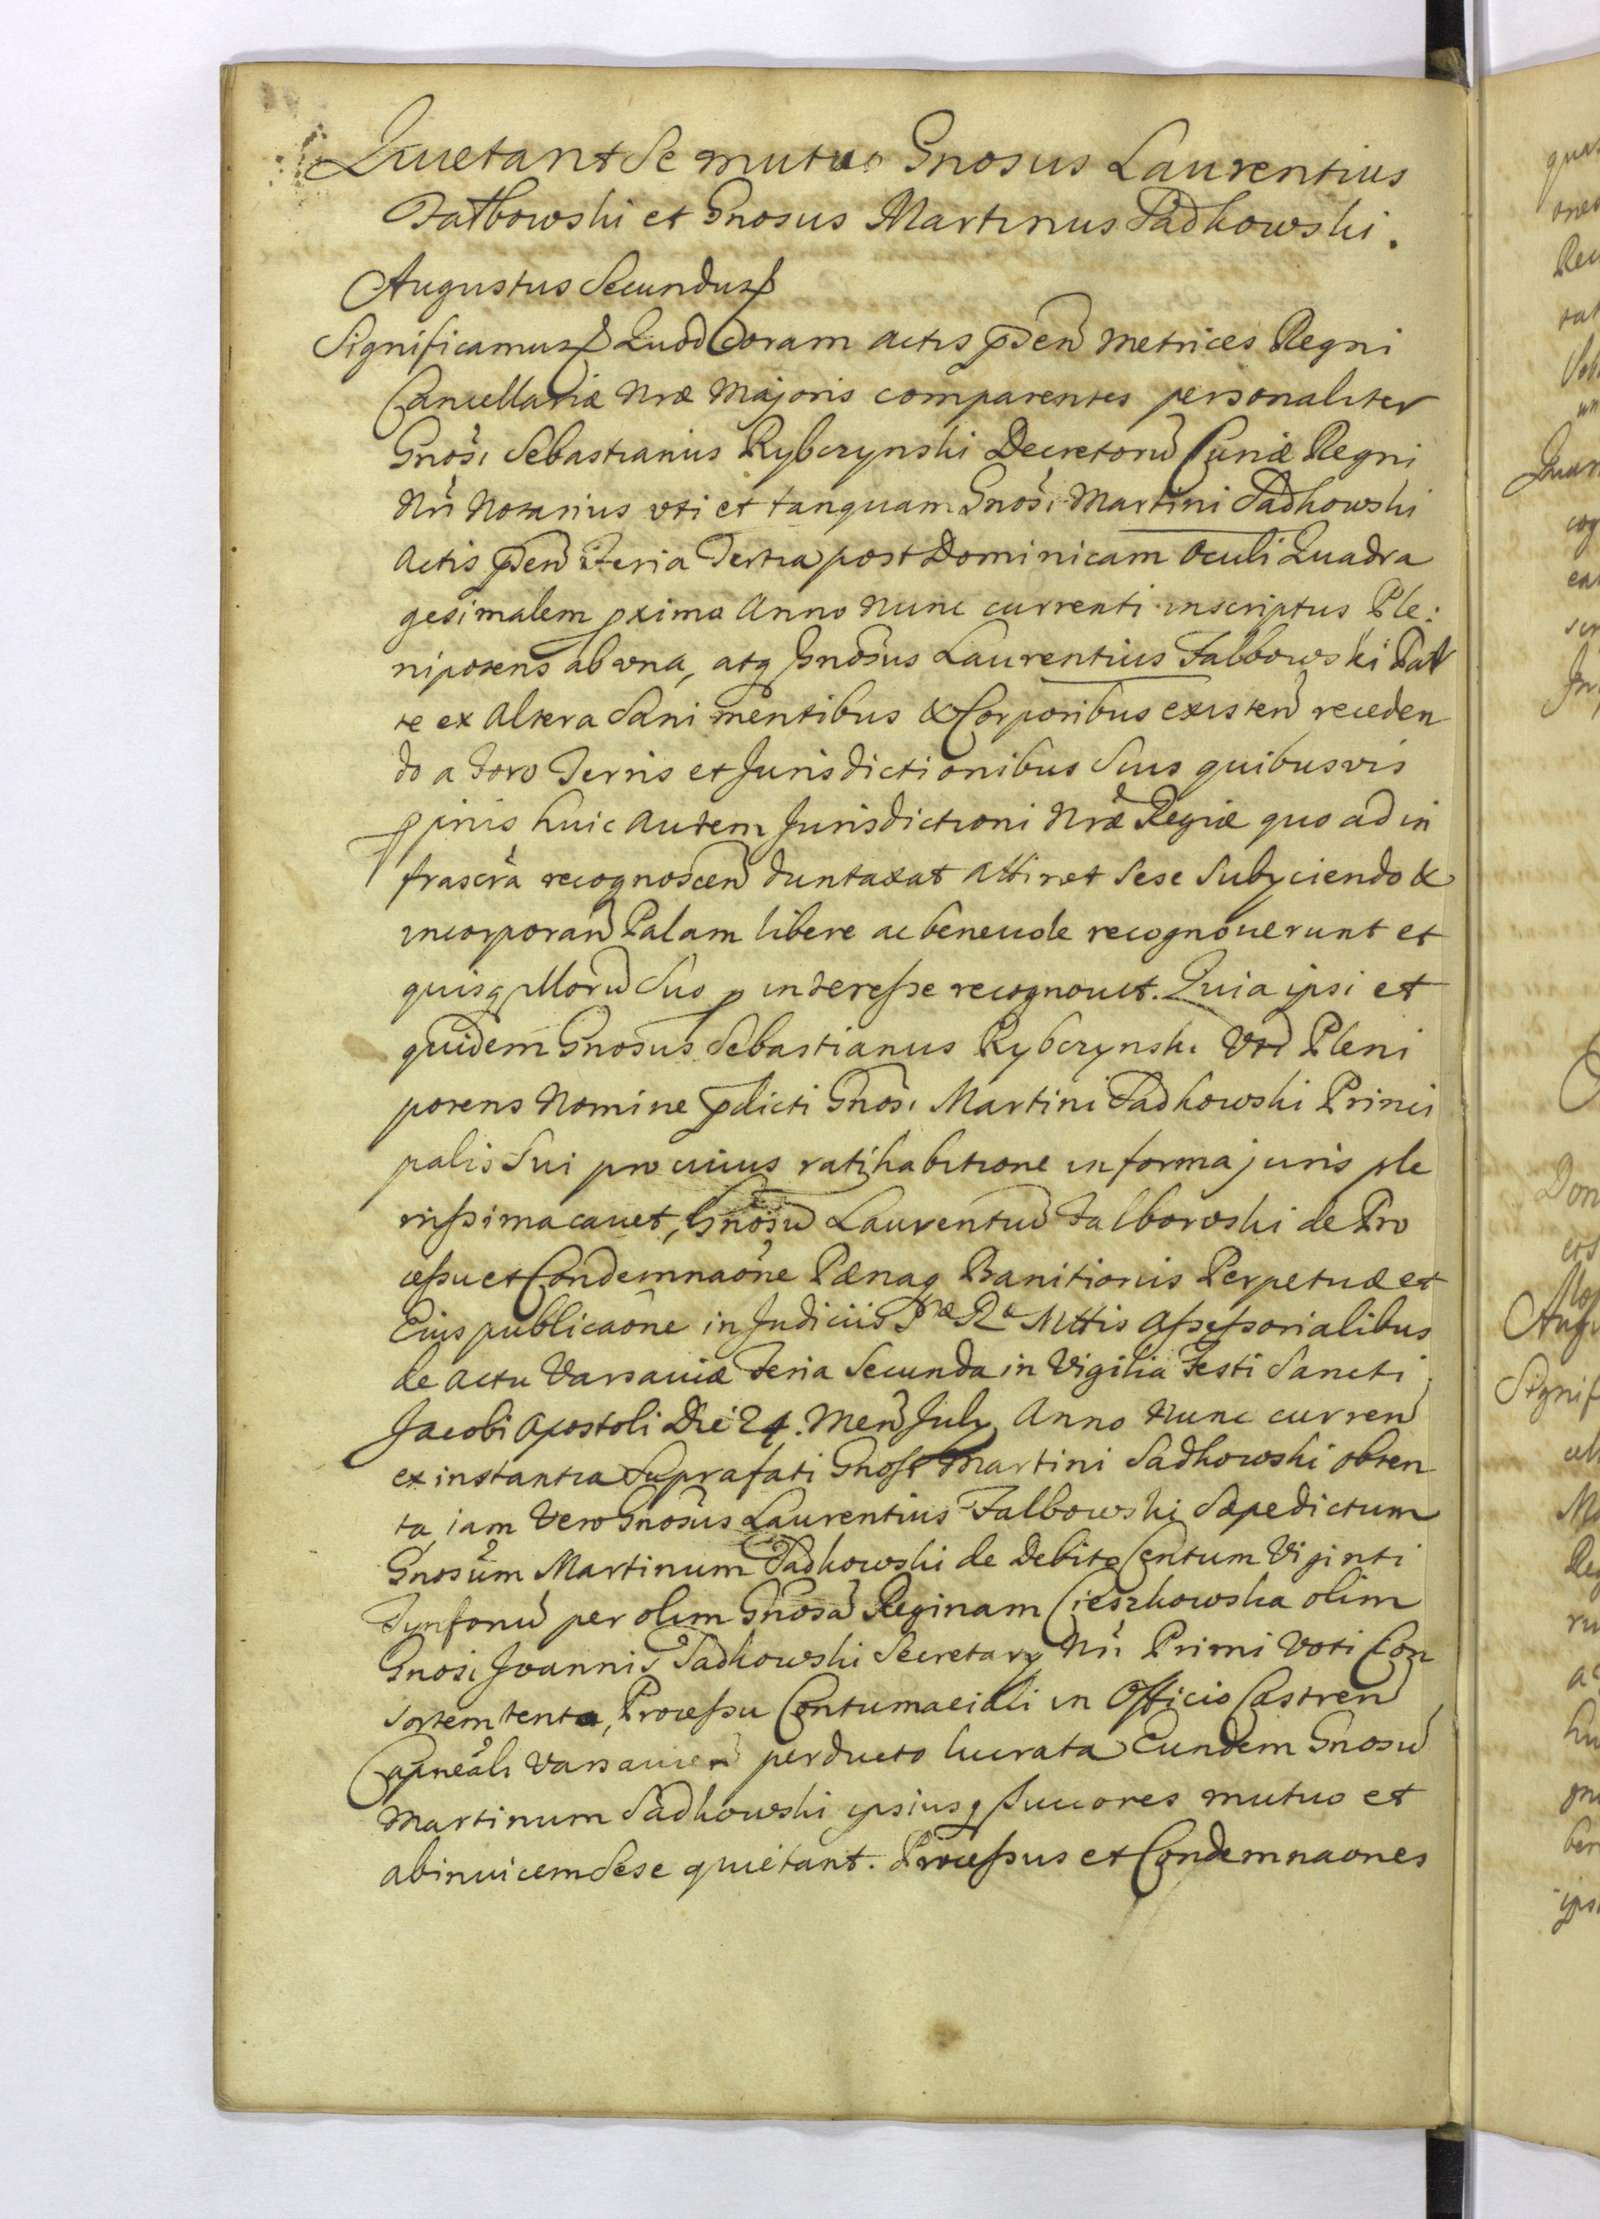 Quietant Se mutuo Gnosus Laurentius
Falbowski et Gnosus Martinus Sadkowski.
Augustus Secundus
Significamus Quod Coram actis pnse͞n metrices Regni
Cancellariæ Nræ Majoris comparentes personaliter
Gnosi Sebastianus Rybczynski Decretorū Curiæ Regni
Nri Notarius uti et tanquam Gnosi Martini Sadkowski
actis pnse͞n Feria Tertia post Dominicam Oculi Quadra
gesimalem pxima Anno nunc currenti inscriptus Ple:
nipotens ab una, atq Gnosus Laurentius Falbowski Par
te ex altera Sani mentibus & Corporibus existen receden
do a Foro Terris et Jurisdictionibus Suis quibusvis
pprijs huic autem Jurisdictioni Nræ Regiæ quo ad in
frascra recognoscen duntaxat attinet Sese Subyciendo &
incorporan Palam libere ac beneuole recognouerunt et
quisq illorū Suo p interesse recognouit. Quia ipsi et
quidem Gnosus Sebastianus Rybczynski Vti Pleni
potens Nomine pdicti Gnosi Martini Sadkowski Princi
palis Sui pro cuius ratihabitione in forma juris ple
nissima cauet, Gnosū Laurentiū Falbowski de Pro
cessu et Condemnaone Pænaq Banitionis Perpetuæ et
Eius publicaone in Judiciis Sræ Ræ Mttis Assessorialibus
de actu Varsauiæ Feria Secunda in Vigilia Festi Sancti
Jacobi Apostoli Die 24. Men July Anno Nunc curren
ex instantia Suprafati Gnosi Martini Sadkowski obten
ta, iam Vero Gnosus Laurentius Falbowski Sæpedictum
Gnosum Martinum Sadkowski de Debito Centum Viginti
Tynfonū per olim Gnosā Reginam Cieszkowska olim
Gnosi Joannis Sadkowski Secretary Nri Primi Voti Con
sortem tento, Processu Contumaciali in Officio Castren
Capneali Varsauien perducto lucrata Eundem Gnosū
Martinum Sadkowski ipsiusq succores mutuo et
abinuicem Sese quietant. Processus et Condemnaones